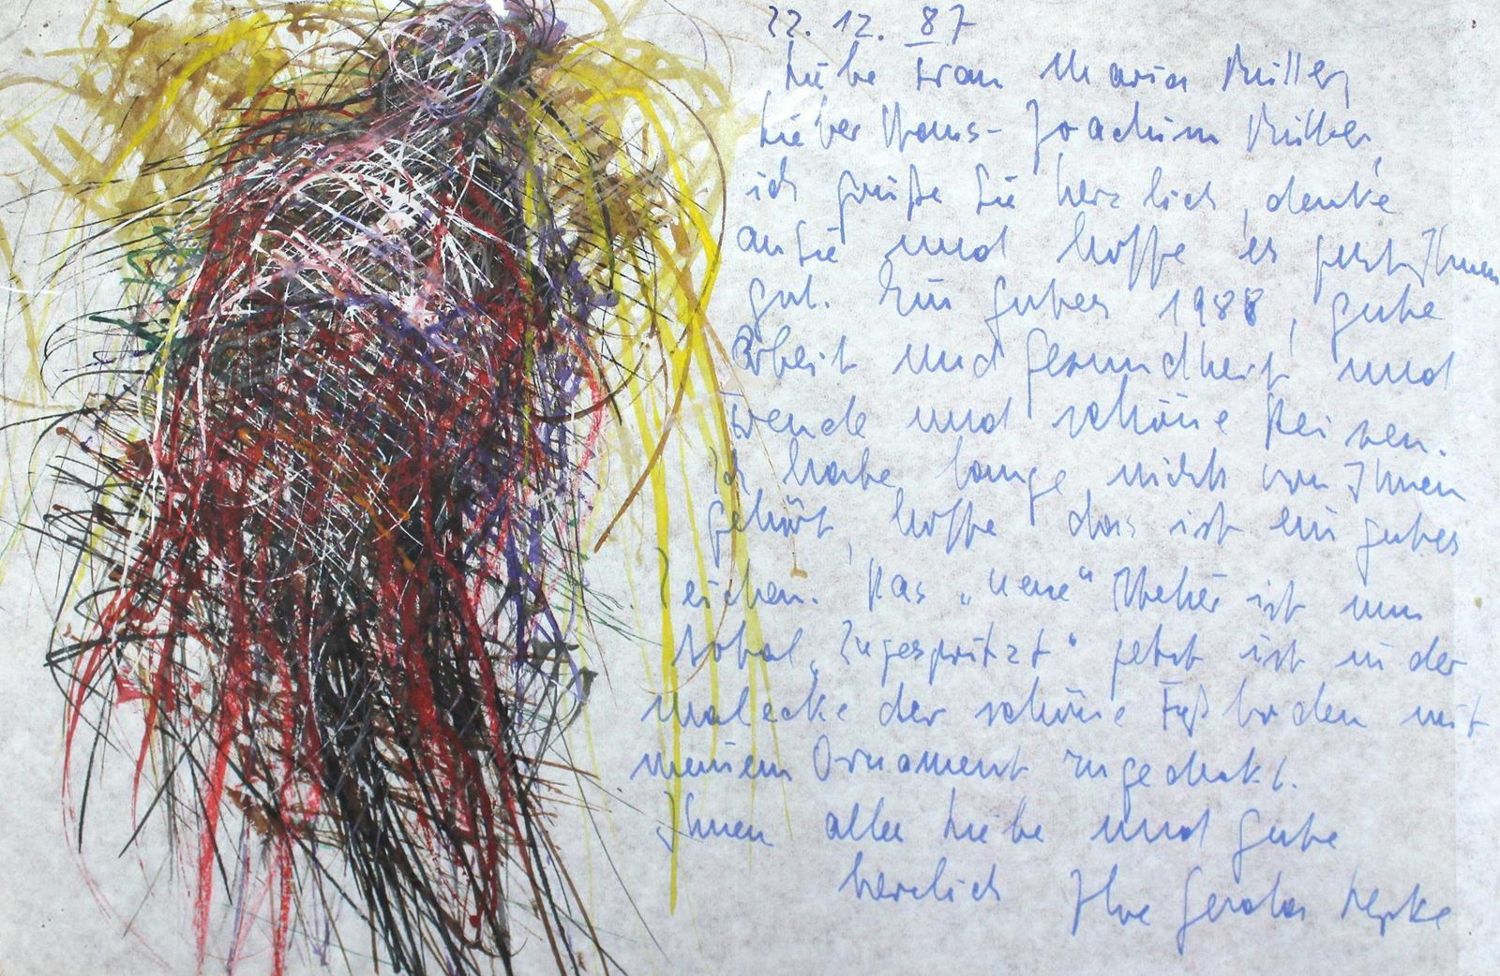 22. 12. 87
Liebe Frau Maria Müller,
Lieber Hans-Joachim Müller,
ich grüße Sie herzlich, denke
an Sie und hoffe es geht Ihnen
gut. Ein gutes 1988, gute
Arbeit und Gesundheit und
Freude und schöne Reisen.
Ich habe lange nichts von Ihnen
gehört, hoffe das ist ein gutes
Zeichen. Das „neue“ Atelier ist nun
total „Zugespritzt“ jetzt ist in der
Malecke der schöne Fußboden mit
meinem Ornament zugedeckt.
Ihnen alles Liebe und Gute
herzlich Ihre Gerda Lepke